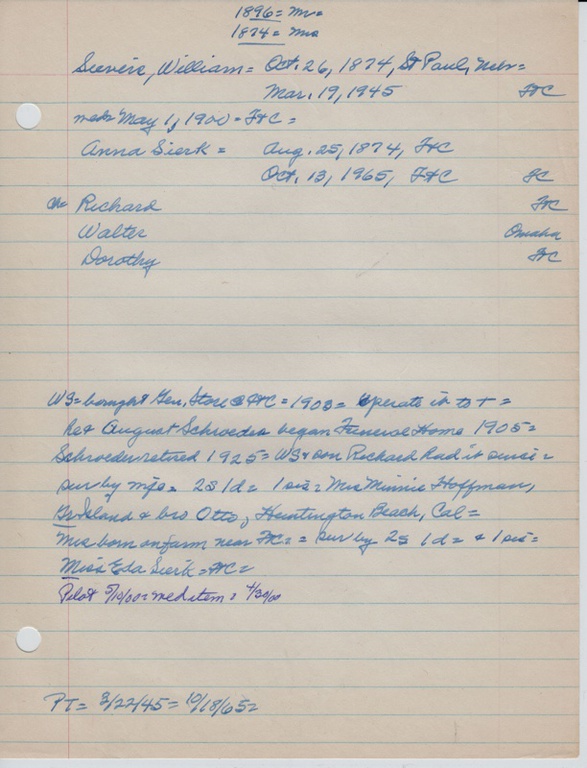 1896 = Mr =
1874 = Mrs
Sievers, William = Oct. 26, 1874, St Paul, Nebr =
Mar. 19, 1945 FtC
md May 1, 1900 = FtC =
Anna Sierk = Aug. 25, 1874, FtC
Oct. 13, 1965, FtC FC
ch Richard FtC
Walter Omaha
Dorothy FtC
WS = bought Gen. Store @ FtC = 1903 = operate it to + =
he & August Schroeder began Funeral Home 1905 =
Schroeder retired 1925 = WS & son Richard had it since =
sur by mrs = 2s 1d = 1 sis = Mrs Minnie Hoffman,
Gr Island & bro Otto, Huntington Beach, Cal =
Mrs born on farm near FtC = = sur by 2s 1d = & 1 sis =
Miss Eda Sierk = FtC =
Pilot 5/10/00 = wed item = 4/30/00
PT = 3/22/45 = 10/18/65 =